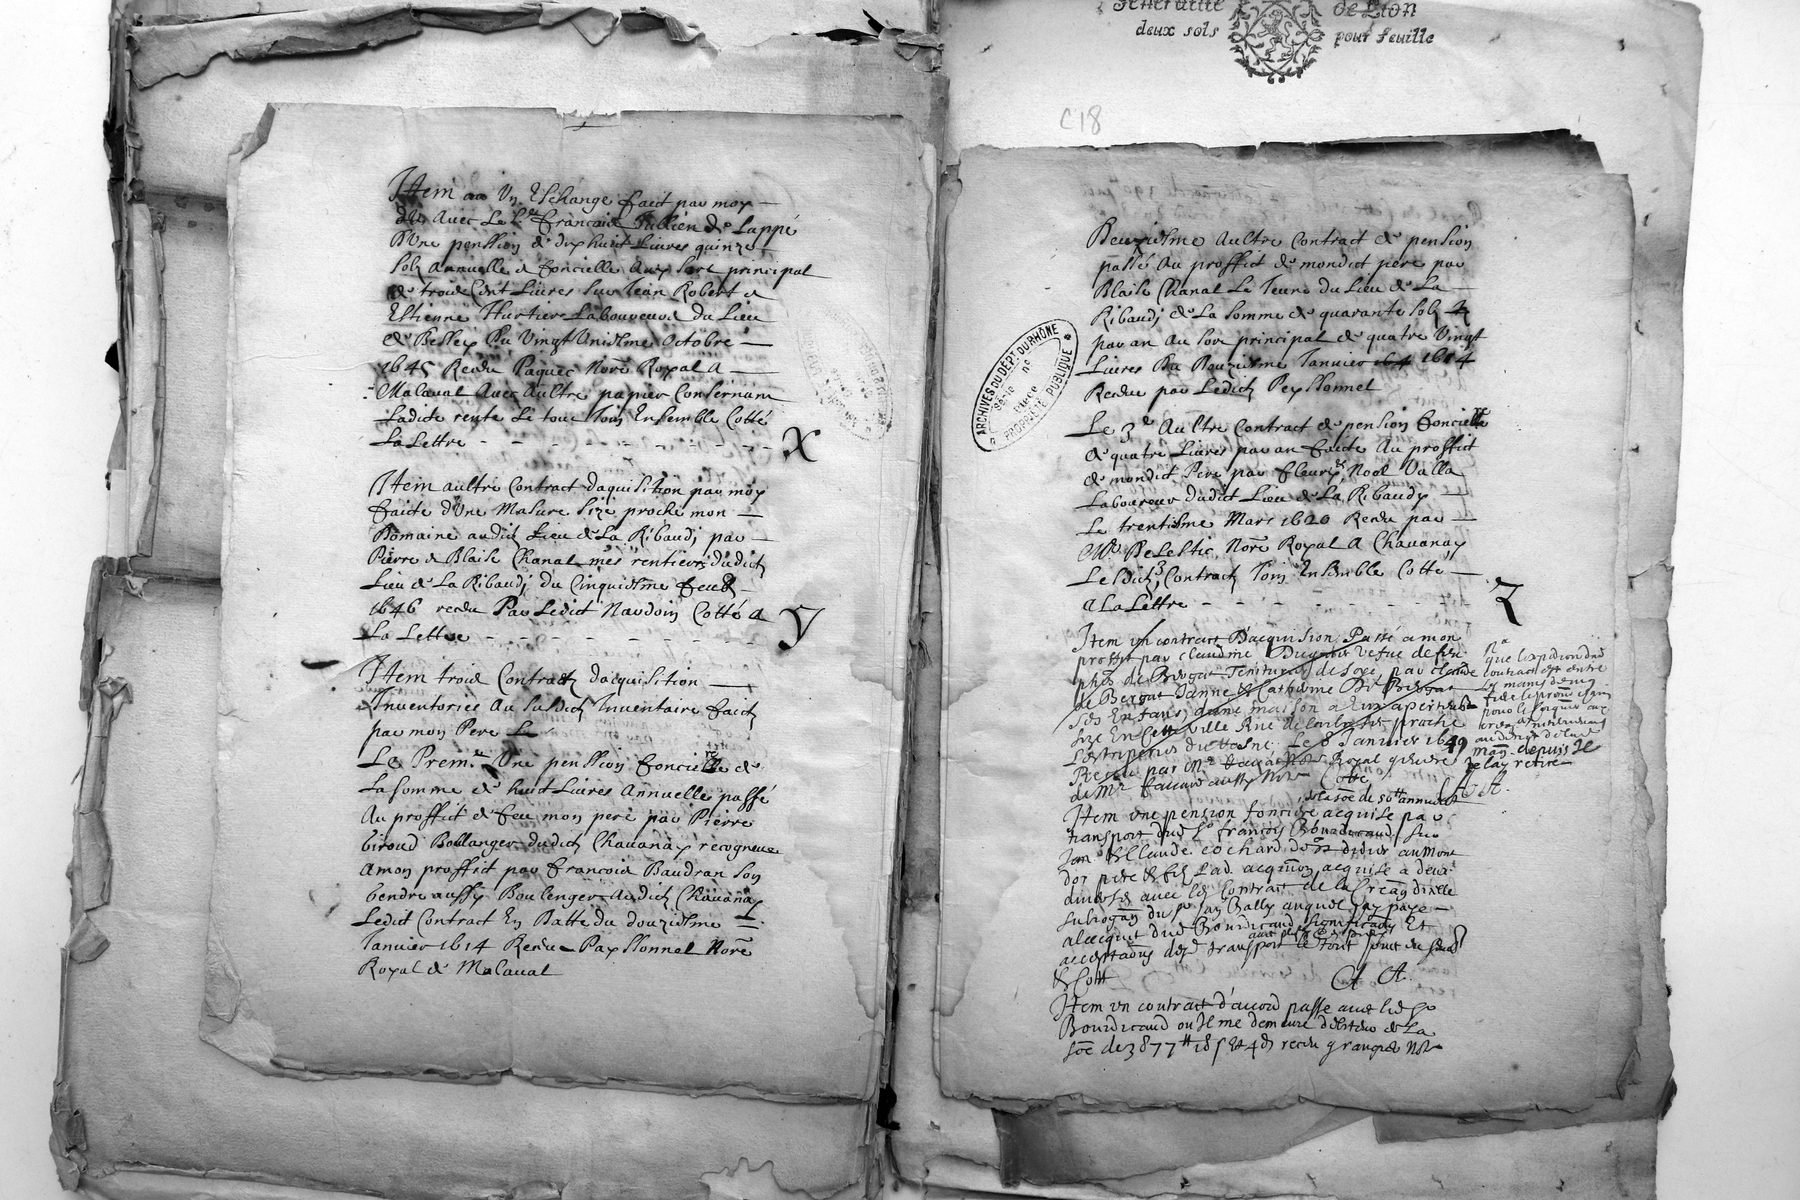 Item un Eschange faict par moy
dit Avec Le Sr francois Jullien de Lappé
D'Une penssion de dix huict Livres quinze
solz Annuelle & foncielle Aux sort principal
de trois Cent Livres Sur Jean Robert &
Estienne Hurtier Laboureurs du Lieu
de Bessey Du Vingt Unisme Octobre
1645 Receu Paquec Nore Royal A
Malaval Avec Aultre papier Consernant
Ladicte rente Le tout Join Ensemble Cotté
La Lettre
X
Item aultre Contract daquisition par moy
faicte d'Une Masure Size proche mon
Domaine audict Lieu de La Ribaudj par
Pierre & Blaise Chanal mes rentiers dudict
Lieu de La Ribaudj du Cinquiesme feub
1646 receu Par Ledict Naudoin Cotté A
La Lettre
Y
Item trois Contractz dacquisition
Inventoriee Au susdict Inventaire faict
par mon Pere Le
Le Premier Une penssion foncielle de
La somme de huict Livres Annuelle passé
Au proffict de feu mon pere par Pierre
Giroud Boulanger dudict Chavanay recogneue
Amon proffict par francois Baudran Son
Gendre aussy Boulenger Audict Chavanay
Ledict Contract En Datte du douziesme
Janvier 1614 Receu Payssonnel Nore
Royal de Malaval
Generalite de Lion
deux sols pour feuille
C18
Deuziesme Aultre Contract de pension
passé Au proffict de mondict pere par
Blaise Chanal Le Jeune du Lieu de La
Ribaudj de La Somme de quarante solz
par an Au sort principal de quatre Vingt
Livres Du Douziesme Janvier 1614
Receu par Ledict Peyssonnel
ARCHIVES DU DÉPT DU RHÔNE
Série No
Pièce
PROPRIÉTÉ PUBLIQUE
Le 3e Aultre Contract de pension foncielle
de quatre Livres par an faicte Au proffict
de mondict Pere par fleury Noel Valla
Laboureur dudict Lieu de La Ribaudy
Le trentiesme Mars 1620 Receu par
Me Delestic Nore Royal A Chavanay
Lesdictz 3 Contractz Join Ensemble Cotte
A La Lettre
Z
Item un contract D'acquision Passé a mon
proffit par claudine vefve de feu
de Bergat Teinturier de soye, par claude
de Bergat Janne & Catherine De Bergat
ses Enfans, dune maison
size En cette ville Rue proche
Le 8 Janvier 1649
Receu par Mr Royal
de Mr favard aussy Nore Cotté
que
contract est entre
les mains
depuis Je
Lelay retiré
A A.
de la soe de 50 tt annuelle
Item une pension fonciere acquise par
transport dud Sr francois Bourdicaud sur
Jean & Claude cochard de St didier au Mont
Dor pere & filz Lad. acquion acquise a deux
diverses avec les Contract de la Creaon dicelle
subrogaon du Sr Bally auquel Jay payé
alacquict dud Bourdicaud Et
acceptaons desd transport Le tout
& Cotté
A A.
Item un contract d'accord passe avec led Sr
Bourdicaud ou Il me demeure debiteur de La
soe de 3877 tt 18 s Et 4 d receu Nore